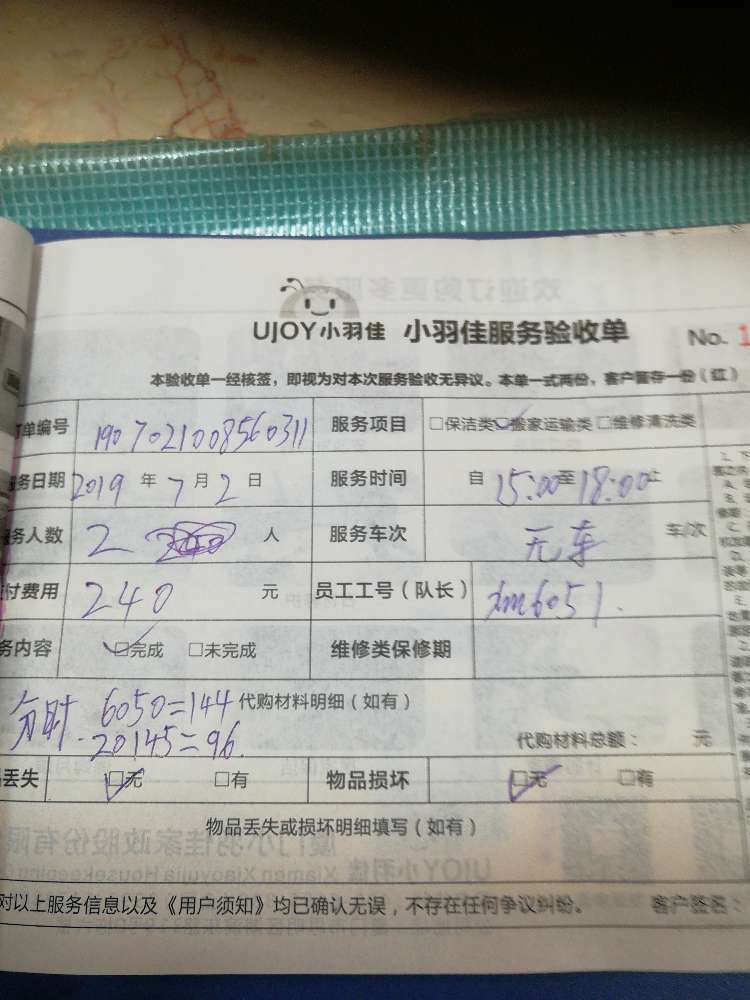 UJOY小羽佳 小羽佳服务验收单 No. 1
本验收单一经核签，即视为对本次服务验收无异议。本单一式两份，客户暂存一份（红）
订单编号 1907021008560311 服务项目 □保洁类 ☑搬家运输类 □维修清洗类
服务日期 2019 年 7 月 2 日 服务时间 自 15:00 至 18:00 止
服务人数 2 人 服务车次 无车 车/次
付费用 240 元 员工工号（队长） xm6051.
务内容 ☑完成 □未完成 维修类保修期
分时. 6050=144 代购材料明细（如有）
20145=96. 代购材料总额： 元
丢失 ☑无 □有 物品损坏 ☑无 □有
物品丢失或损坏明细填写（如有）
对以上服务信息以及《用户须知》均已确认无误，不存在任何争议纠纷。 客户签名：